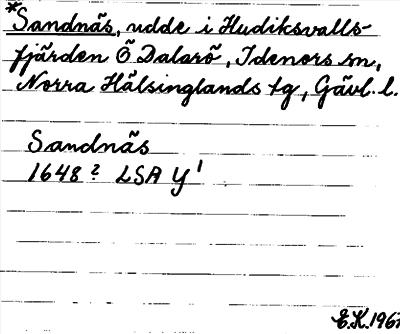 *Sandnäs, udde i Hudiksvalls-
fjärden Ö Dalarö, Idenors sn,
Norra Hälsinglands tg, Gävl. l.
Sandnäs
1648? LSA Y¹
E.K.196